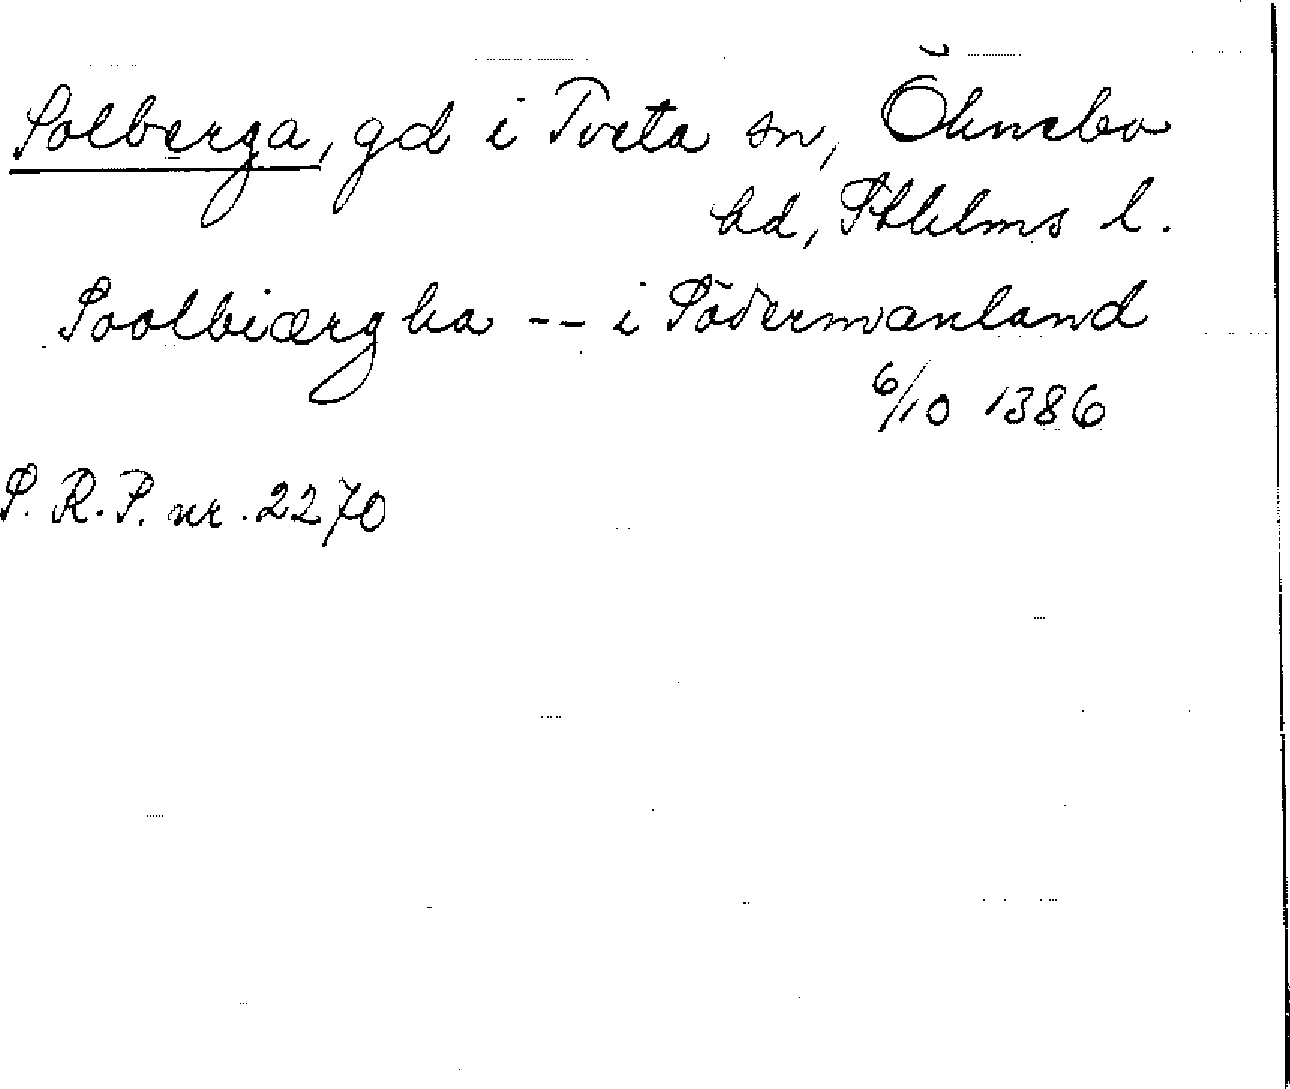 Solberga, gd i Tveta sn, Öknebo
hd, Sthlms l.
Soolbiærgha -- i Södermanland
6/10 1386
S. R. P. nr. 2270